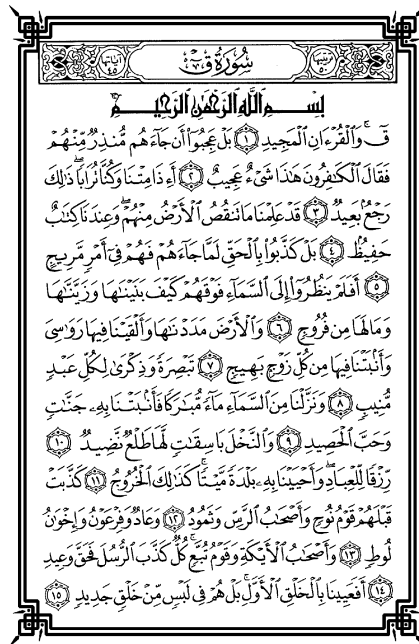 ترتيبها ٥٠ سُورَةُ قٓ آياتها ٤٥
بِسْمِ ٱللَّهِ ٱلرَّحْمَٰنِ ٱلرَّحِيمِ
قٓۚ وَٱلْقُرْءَانِ ٱلْمَجِيدِ ۝١ بَلْ عَجِبُوٓا۟ أَن جَآءَهُم مُّنذِرٌ مِّنْهُمْ
فَقَالَ ٱلْكَٰفِرُونَ هَٰذَا شَىْءٌ عَجِيبٌ ۝٢ أَءِذَا مِتْنَا وَكُنَّا تُرَابًاۖ ذَٰلِكَ
رَجْعٌۢ بَعِيدٌ ۝٣ قَدْ عَلِمْنَا مَا تَنقُصُ ٱلْأَرْضُ مِنْهُمْۖ وَعِندَنَا كِتَٰبٌ
حَفِيظٌۢ ۝٤ بَلْ كَذَّبُوا۟ بِٱلْحَقِّ لَمَّا جَآءَهُمْ فَهُمْ فِىٓ أَمْرٍ مَّرِيجٍ
۝٥ أَفَلَمْ يَنظُرُوٓا۟ إِلَى ٱلسَّمَآءِ فَوْقَهُمْ كَيْفَ بَنَيْنَٰهَا وَزَيَّنَّٰهَا
وَمَا لَهَا مِن فُرُوجٍ ۝٦ وَٱلْأَرْضَ مَدَدْنَٰهَا وَأَلْقَيْنَا فِيهَا رَوَٰسِىَ
وَأَنۢبَتْنَا فِيهَا مِن كُلِّ زَوْجٍۭ بَهِيجٍ ۝٧ تَبْصِرَةً وَذِكْرَىٰ لِكُلِّ عَبْدٍ
مُّنِيبٍ ۝٨ وَنَزَّلْنَا مِنَ ٱلسَّمَآءِ مَآءً مُّبَٰرَكًا فَأَنۢبَتْنَا بِهِۦ جَنَّٰتٍ
وَحَبَّ ٱلْحَصِيدِ ۝٩ وَٱلنَّخْلَ بَاسِقَٰتٍ لَّهَا طَلْعٌ نَّضِيدٌ ۝١٠
رِّزْقًا لِّلْعِبَادِۖ وَأَحْيَيْنَا بِهِۦ بَلْدَةً مَّيْتًاۚ كَذَٰلِكَ ٱلْخُرُوجُ ۝١١ كَذَّبَتْ
قَبْلَهُمْ قَوْمُ نُوحٍ وَأَصْحَٰبُ ٱلرَّسِّ وَثَمُودُ ۝١٢ وَعَادٌ وَفِرْعَوْنُ وَإِخْوَٰنُ
لُوطٍ ۝١٣ وَأَصْحَٰبُ ٱلْأَيْكَةِ وَقَوْمُ تُبَّعٍۚ كُلٌّ كَذَّبَ ٱلرُّسُلَ فَحَقَّ وَعِيدِ
۝١٤ أَفَعَيِينَا بِٱلْخَلْقِ ٱلْأَوَّلِۚ بَلْ هُمْ فِى لَبْسٍ مِّنْ خَلْقٍ جَدِيدٍ ۝١٥